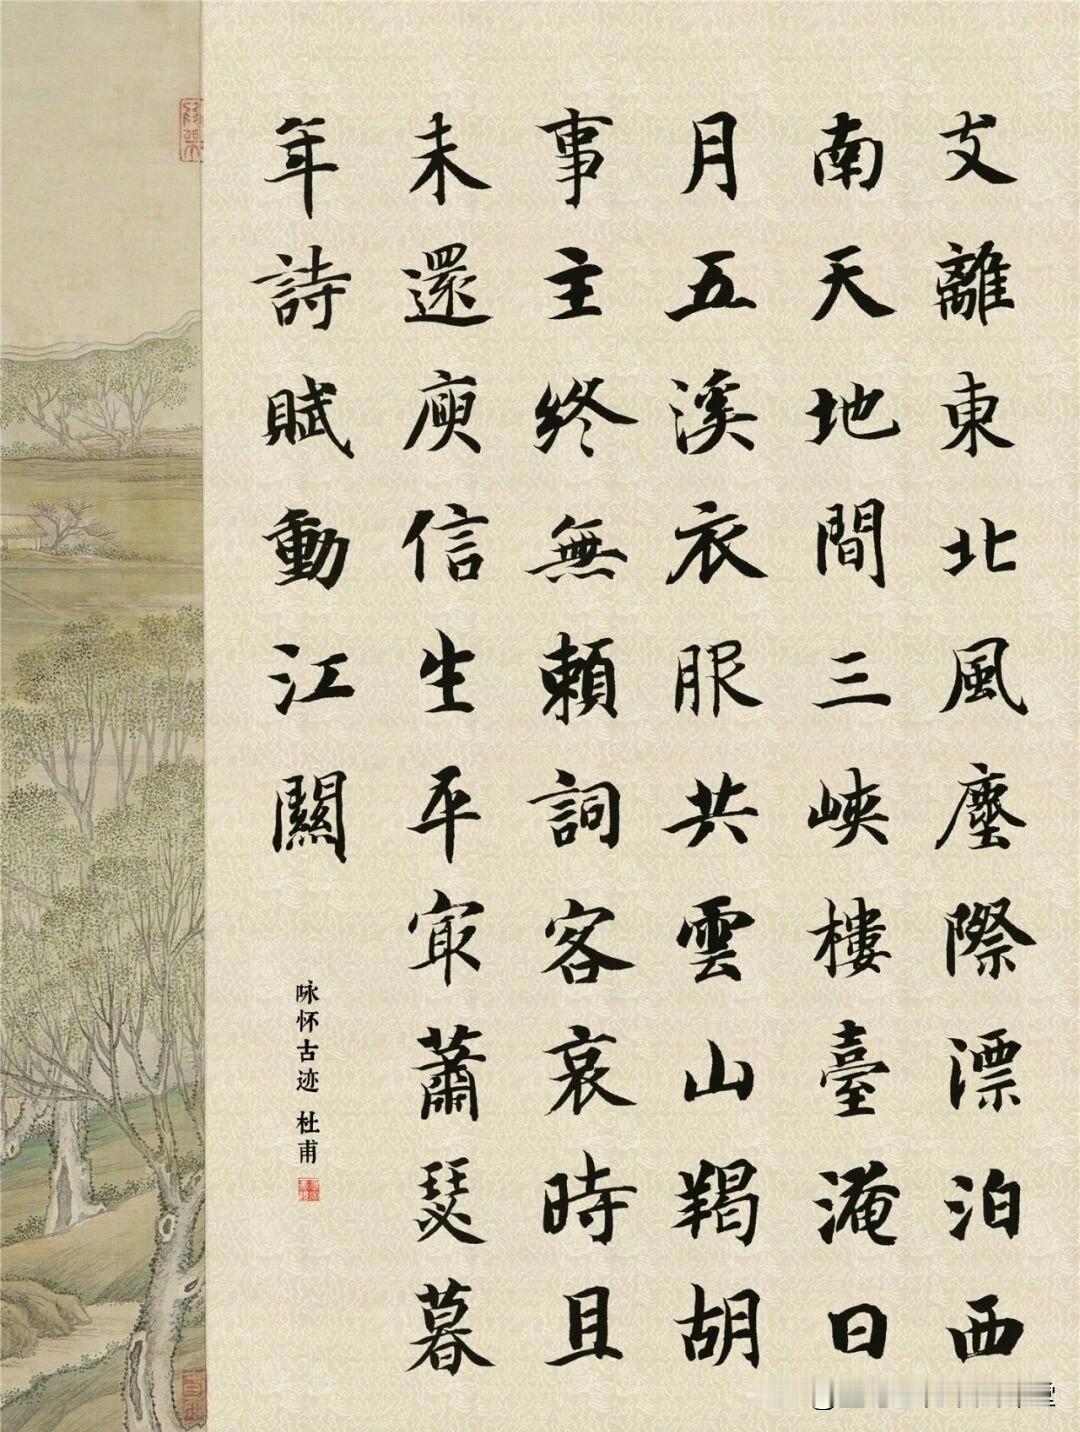 支離東北風塵際漂泊西
南天地間三峽樓臺淹日
月五溪衣服共雲山羯胡
事主終無賴詞客哀時且
未還庾信生平冣蕭瑟暮
年詩賦動江關
咏怀古迹 杜甫